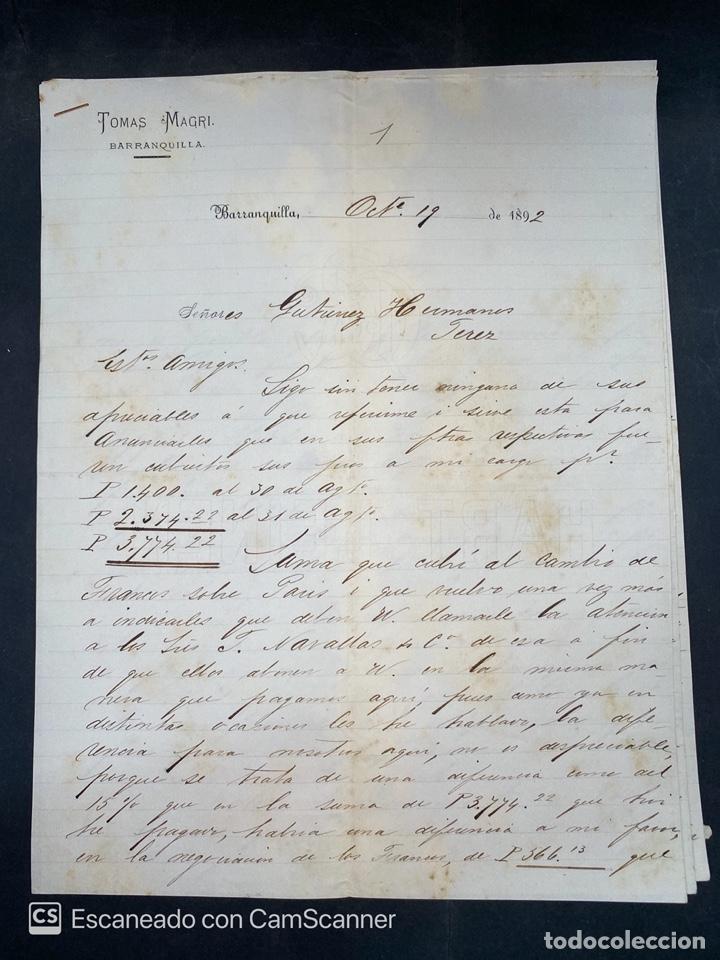 TOMAS MAGRI.
BARRANQUILLA.
1
Barranquilla, Octe. 19 de 1892
Señores Gutierrez Hermanos
Jerez
Estos. Amigos.
Sigo sin tener ninguna de sus
apreciables á que referirme i sirve esta para
Anunciarles que en sus ftras respectivas fue-
ron cubiertos sus jiros a mi cargo pr.
P 1.400. al 30 de Agto.
P 2.374.22 al 31 de Agto.
P 3.774.22
Suma que cubrí al cambio de
Francos sobre Paris i que vuelvo una vez más
a indicarles que deben W. llamarle la atención
a los Srs J. Navallas & Ca. de esa a fin
de que ellos abonen a W. en la misma ma-
nera que pagamos aquí, pues como ya en
distintas ocasiones les hé hablado, la dife-
rencia para nosotros aquí, no es despreciable,
porque se trata de una diferencia como del
15% que en la suma de P 3.774.22 que hoi
he pagado, habría una diferencia a mi favor,
en la negociación de los Francos, de P 366.13 que
CS Escaneado con CamScanner
todocoleccion